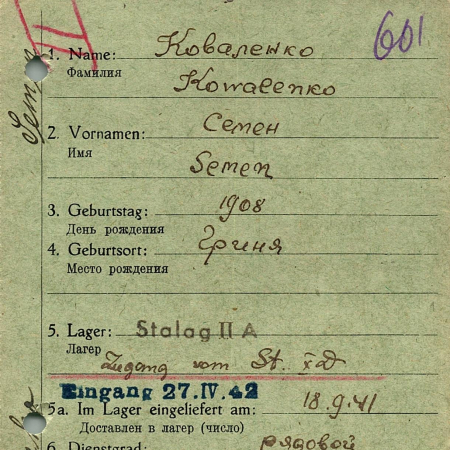 601
1. Name: Коваленко
Фамилия
Kowalenko
2. Vornamen: Семен
Имя
Semen
3. Geburtstag: 1908
День рождения
4. Geburtsort: Гриня
Место рождения
5. Lager: Stalag II A
Лагерь
Zugang vom St. X D
Eingang 27. IV. 42
5a. Im Lager eingeliefert am: 18.9.41
Доставлен в лагерь (число)
6. Dienstgrad: рядовой